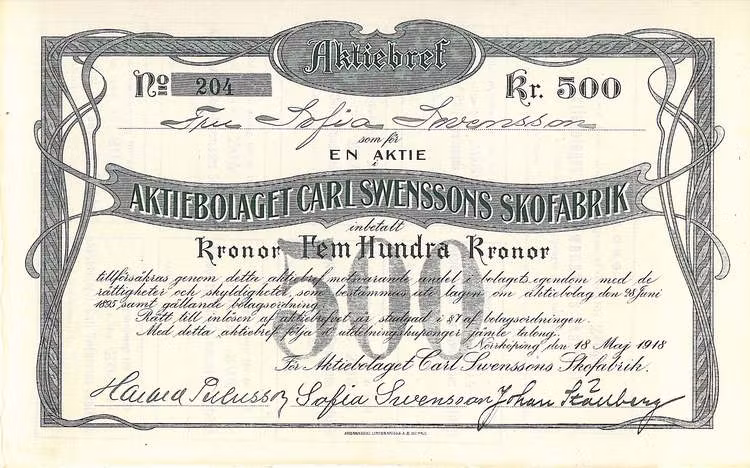 Aktiebref
No 204
Kr. 500
Fru Sofia Swensson
som för
EN AKTIE
i
AKTIEBOLAGET CARL SWENSSONS SKOFABRIK
inbetalt
Kronor Fem Hundra Kronor
500
tillförsäkras genom detta aktiebref motsvarande andel i bolagets egendom med de
rättigheter och skyldigheter, som bestämmas i lagen om aktiebolag den 28 Juni
1895 samt gällande bolagsordning.
Rätt till inlösen af aktiebref är stadgad i §7 af bolagsordningen.
Med detta aktiebref följa utdelningskuponger jämte talong.
Norrköping den 18 Maj 1918
För Aktiebolaget Carl Swenssons Skofabrik.
Sofia Swensson Johan